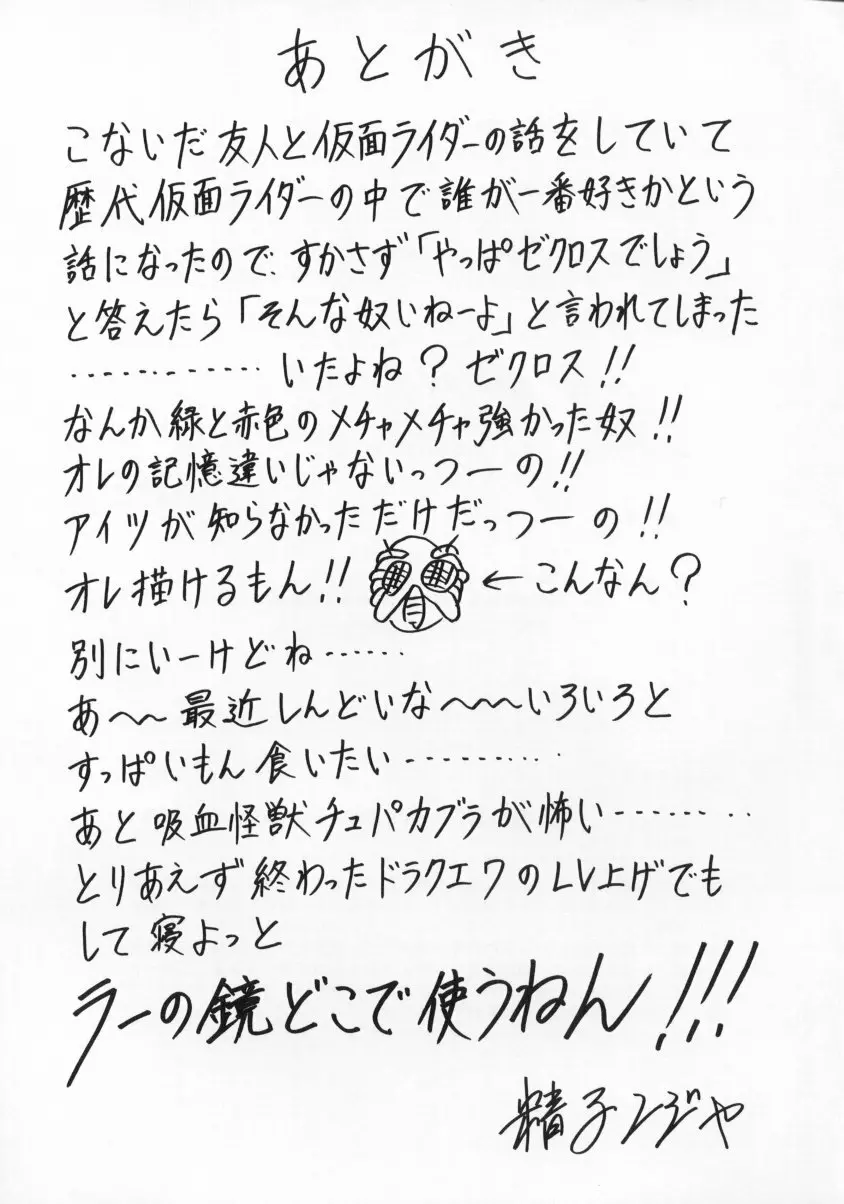 あとがき
こないだ友人と仮面ライダーの話をしていて
歴代仮面ライダーの中で誰が一番好きかという
話になったので、すかさず「やっぱゼクロスでしょう」
と答えたら「そんな奴いねーよ」と言われてしまった
……………いたよね？ゼクロス!!
なんか緑と赤色のメチャメチャ強かった奴!!
オレの記憶違いじゃないっつーの!!
アイツが知らなかっただけだっつーの!!
オレ描けるもん!! ←こんなん？
別にいーけどね……
あ〜〜最近しんどいな〜〜〜いろいろと
すっぱいもん食いたい…………
あと吸血怪獣チュパカブラが怖い…………
とりあえず終わったドラクエ7のLV上げでも
して寝よっと
ラーの鏡どこで使うねん!!!
精子ンジャ